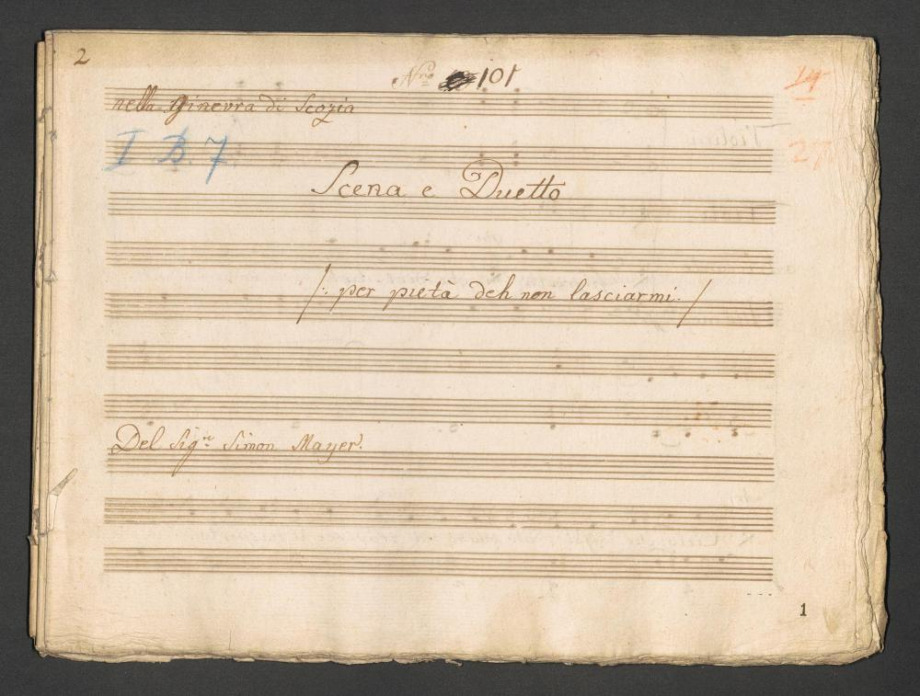 2
Nro 101
14
nella Ginevra di Scozia
I B 7
27
Scena e Duetto
/: per pietà deh non lasciarmi. /
Del Sigre Simon Mayer.
1